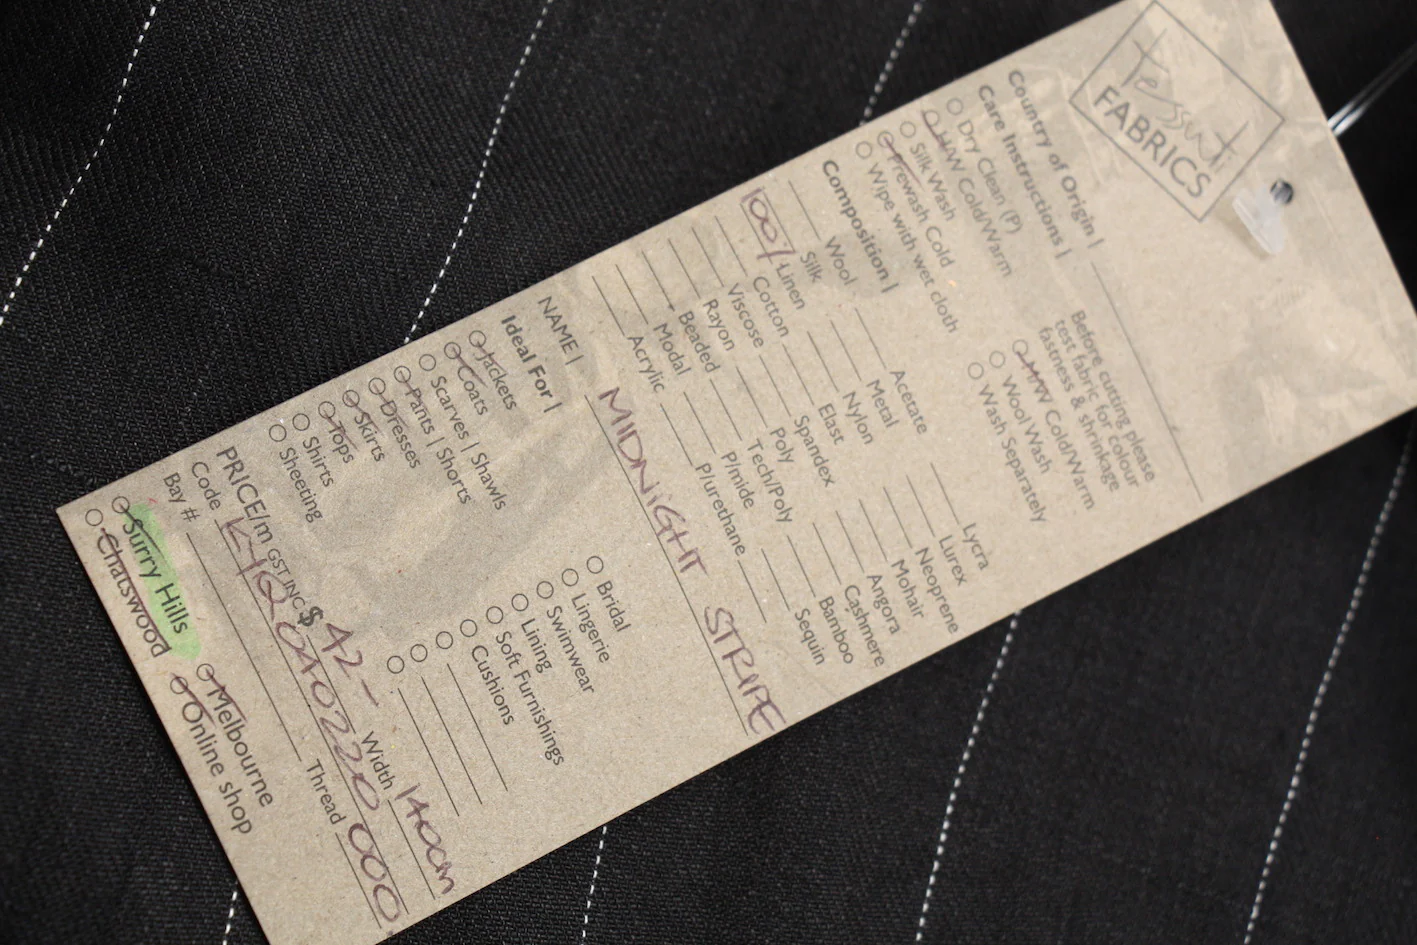 tessuti
FABRICS
Country of Origin |
Care Instructions |
Dry Clean (P)
HW Cold/Warm
Silk Wash
Prewash Cold
Wipe with wet cloth
Before cutting please
test fabric for colour
fastness & shrinkage
MW Cold/Warm
Wool Wash
Wash Separately
Composition |
Wool
Silk
100% Linen
Cotton
Viscose
Rayon
Beaded
Modal
Acrylic
Acetate
Metal
Nylon
Elast
Spandex
Poly
Tech/Poly
P/mide
P/urethane
Lycra
Lurex
Neoprene
Mohair
Angora
Cashmere
Bamboo
Sequin
NAME | MIDNIGHT STRIPE
Ideal For |
Jackets
Coats
Scarves | Shawls
Pants | Shorts
Dresses
Skirts
Tops
Shirts
Sheeting
Bridal
Lingerie
Swimwear
Lining
Soft Furnishings
Cushions
PRICE/m GST INC $ 42- Width 140cm
Code
Bay # Thread 000
Surry Hills
Chatswood
Melbourne
Online shop